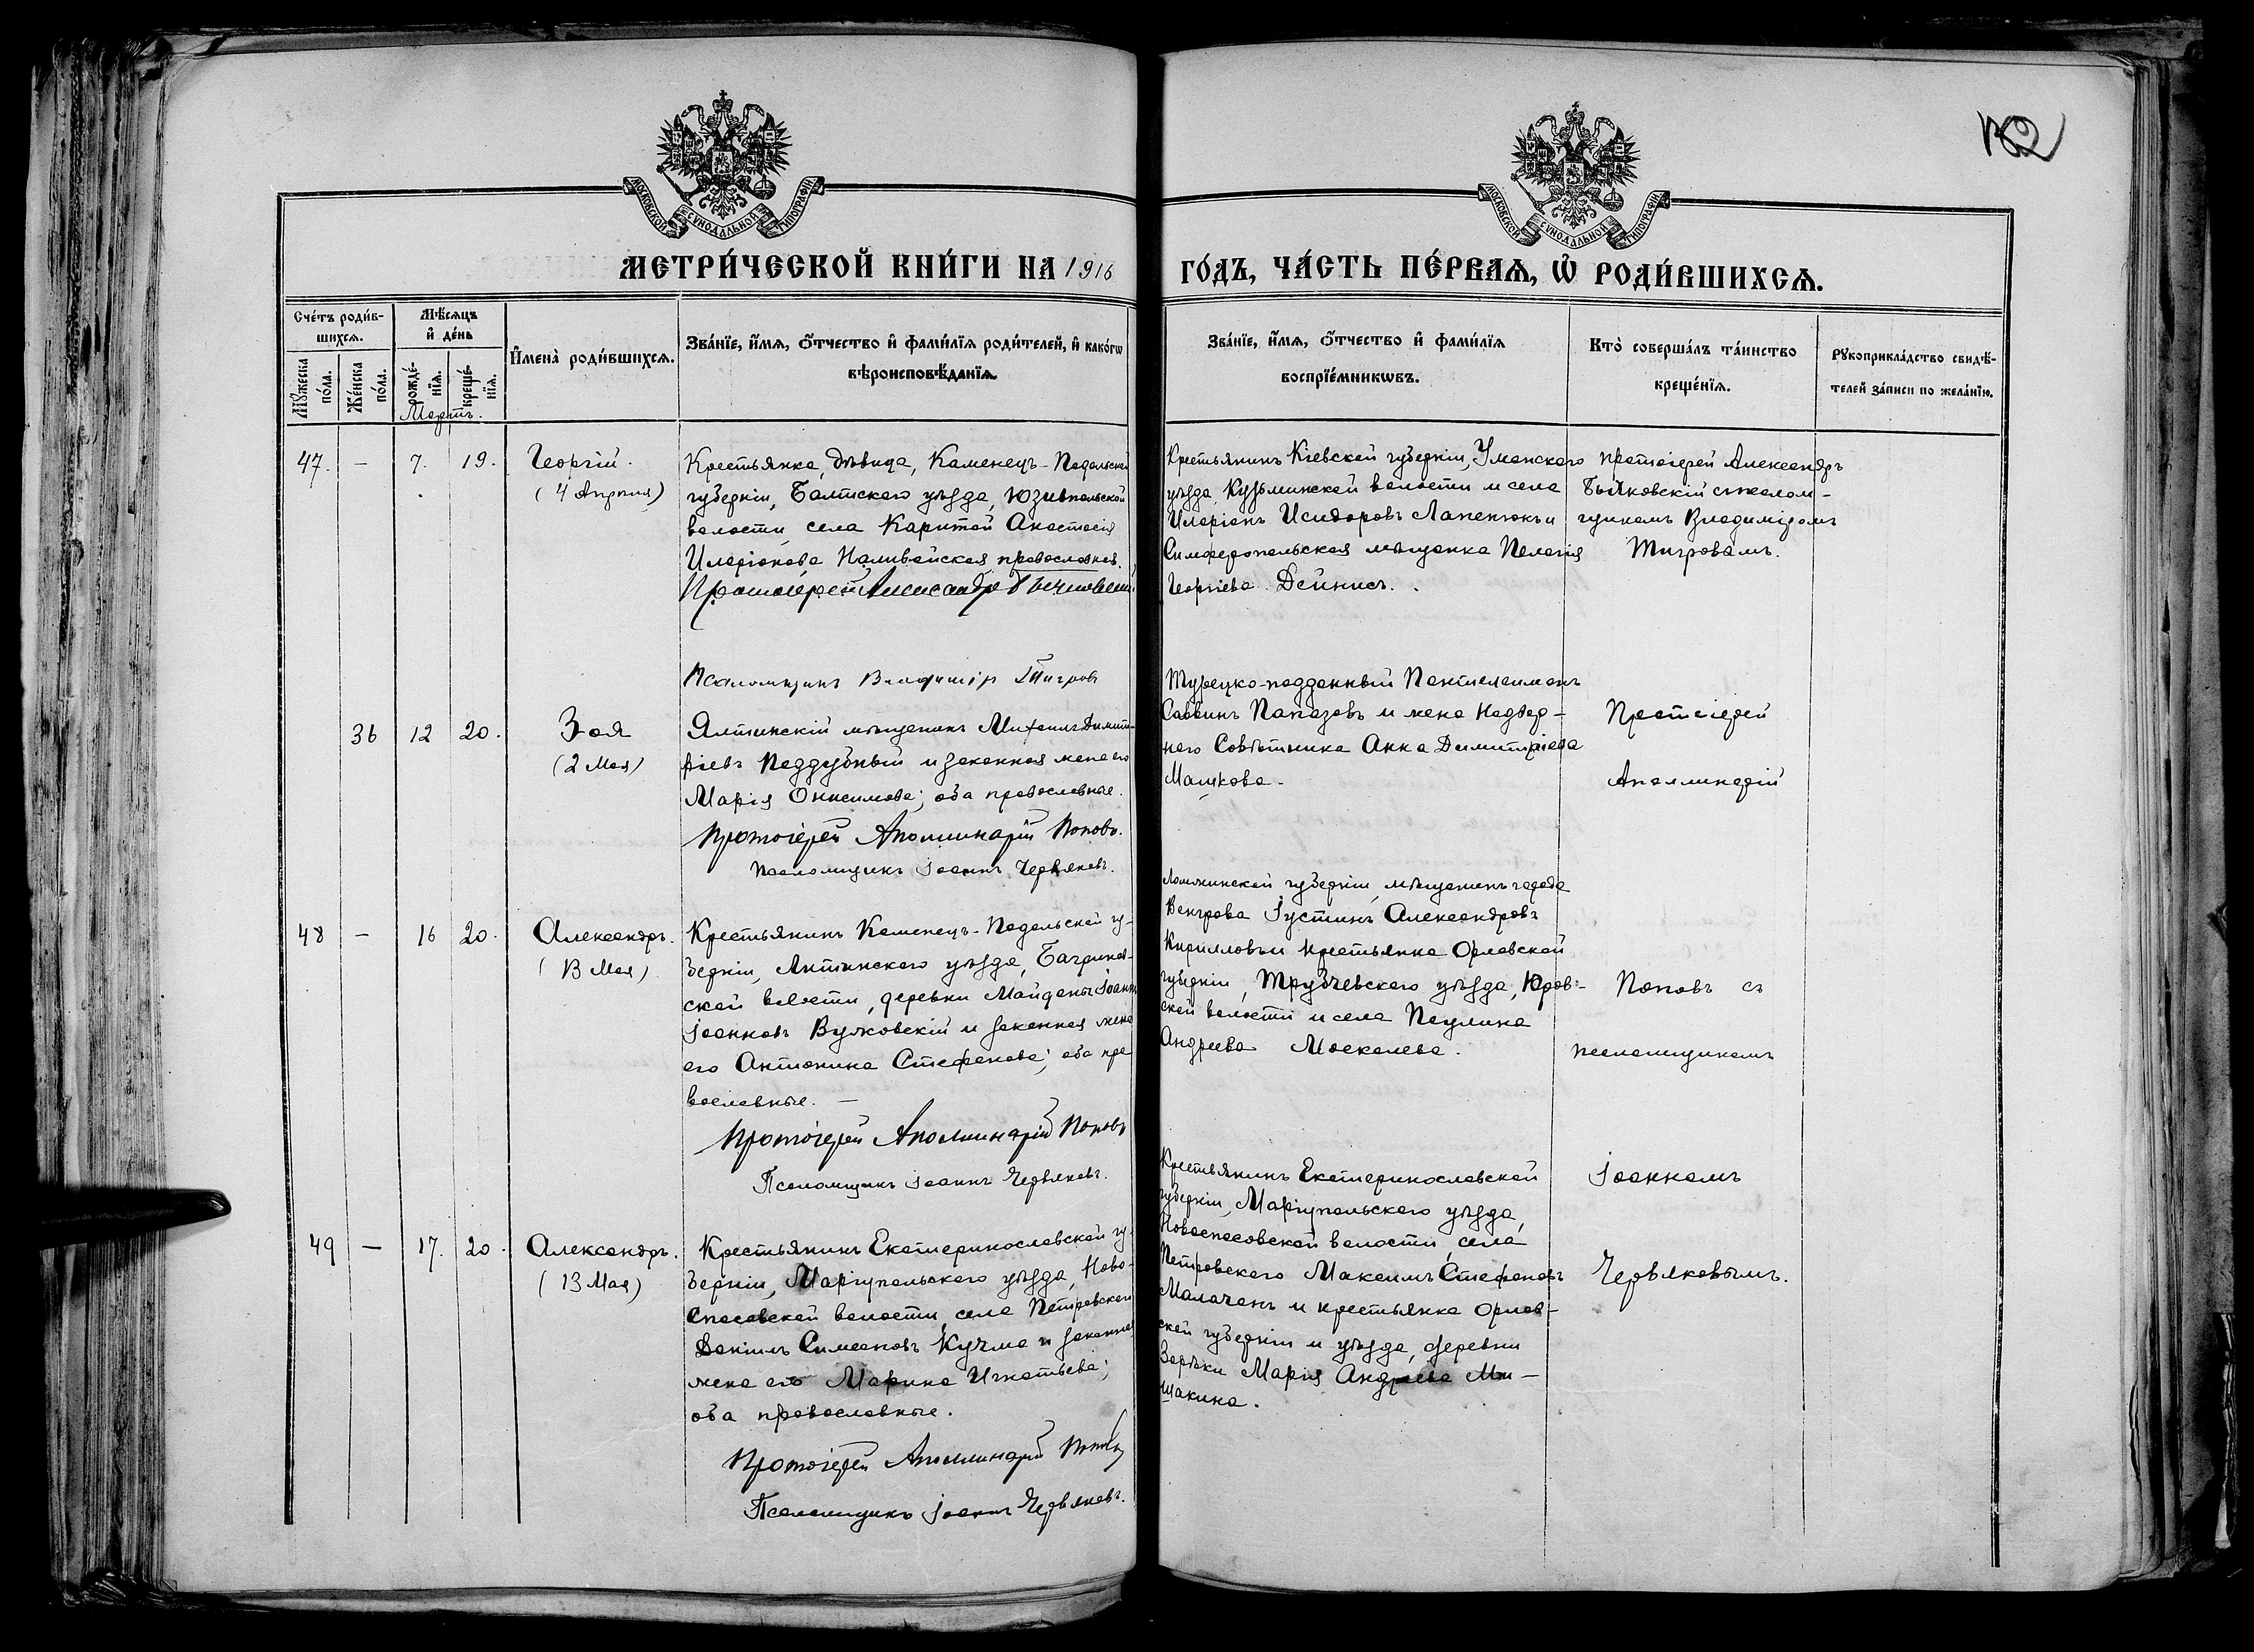 МОСКОВСКОЙ СѴНОДАЛЬНОЙ ТИПОГРАФІИ
МОСКОВСКОЙ СѴНОДАЛЬНОЙ ТИПОГРАФІИ
МЕТРИ́ЧЕСКОЙ КНИ́ГИ НА 1916
ГО́ДЪ, ЧА́СТЬ ПЕ́РВАѦ, Ѽ РОДИ́ВШИХСѦ.
Сче́тъ роди́в-
шихсѧ.
Мѣ́сѧцъ
и҆ де́нь
И҆мена̀ роди́вшихсѧ.
Зва́нїе, и҆́мѧ, ѻ҆́тчество и҆ фами́лїѧ роди́телей, и҆ како́гѡ
вѣроисповѣ́данїѧ.
Мꙋ́жеска
по́ла.
Же́нска
по́ла.
рожде́-
нїѧ.
креще́-
нїѧ.
Мартъ.
Зва́нїе, и҆́мѧ, ѻ҆́тчество и҆ фами́лїѧ
воспрїе́мникѡвъ.
Кто̀ соверша́лъ та́инство
креще́нїѧ.
Рꙋкоприкла́дство свидѣ́-
телей за́писи по жела́нїю.
47. — 7. 19. Георгій.
(4 Апрѣля)
Крестьянка, дѣвица, Каменецъ-Подольской
губерніи, Балтскаго уѣзда, Юзивпольской
волости, села Анастасія
Иларіонова Наливайская православная.
Протоіерей Александръ
Псаломщикъ Владиміръ Тигровъ
Крестьянинъ Кіевской губерніи, Уманскаго
уѣзда, Кузьминской волости и села
Иларіонъ Исидоровъ Лапенюкъ и
Симферопольская мѣщанка Пелагія
Георгіева Дейнисъ.
Протоіерей Александръ
съ псалом-
щикомъ Владиміромъ
Тигровымъ.
36 12 20. Зоя
(2 Мая)
Ялтинскій мѣщанинъ Михаилъ Димит-
ріевъ Поддубный и законная жена его
Марія Онисимова; оба православные.
Протоіерей Аполлинарій Поповъ.
Псаломщикъ Іоаннъ Червяковъ.
Турецко-подданный Пантелеимонъ
Саввинъ Папазовъ и жена Надвор-
наго Совѣтника Анна Димитріева
Машкова.
Протоіерей
Аполлинарій
48 — 16 20. Александръ.
(13 Мая)
Крестьянинъ Каменецъ-Подольской гу-
берніи, Литинскаго уѣзда, Багринов-
ской волости, деревни Майданы Іоаннъ
Іоанновъ Вулковскій и законная жена
его Антонина Стефанова; оба пра-
вославные. —
Протоіерей Аполлинарій Поповъ
Псаломщикъ Іоаннъ Червяковъ.
Ломжинской губерніи, мѣщанинъ города
Венгрова Іустинъ Александровъ
Кирилловъ и крестьянка Орловской
губерніи, Трубчевскаго уѣзда, Юров-
ской волости и села Паулина
Андреева Москалева.
Поповъ съ
псаломщикомъ
49 — 17. 20. Александръ.
(13 Мая)
Крестьянинъ Екатеринославской гу-
берніи, Маріупольскаго уѣзда, Ново-
спасовской волости, села Петровскаго
Даніилъ Симеоновъ Кучма и законная
жена его Марина Игнатьева;
оба православные.
Протоіерей Аполлинарій Поповъ
Псаломщикъ Іоаннъ Червяковъ.
Крестьянинъ Екатеринославской
губерніи, Маріупольскаго уѣзда,
Новоспасовской волости, села
Петровскаго Максимъ Стефановъ
Малачанъ и крестьянка Орлов-
ской губерніи и уѣзда, деревни
Зарѣчки Марія Андреева Ми-
шакина.
Іоанномъ
Червяковымъ.